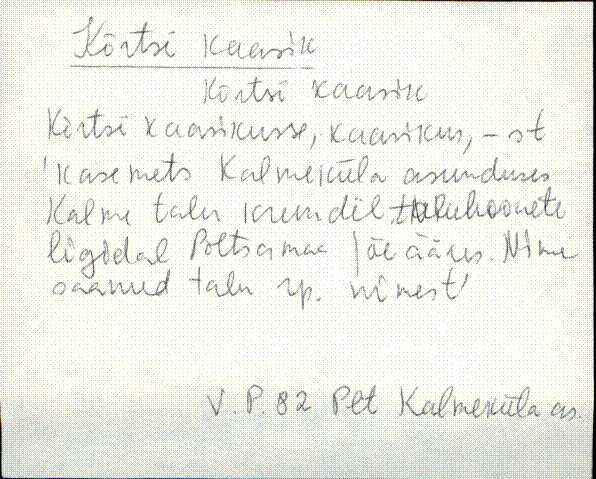 Kõrtsi kaasik
Kõrtsi kaasik
Kõrtsi kaasikusse, kaasikus, -st
'kasemets Kalmeküla asunduses
Kalme talu krundil taluhoonete
ligidal Põltsamaa jõe ääres. Nime
saanud talu rp. nimest'
V. P. 82 Plt Kalmeküla as.